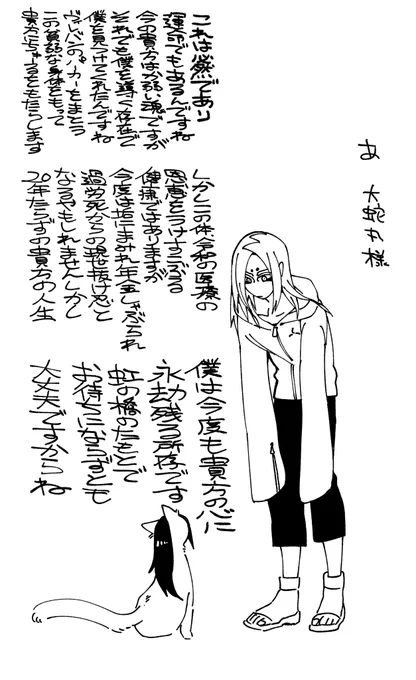 あ 大蛇丸様
これは必然であり
運命でもあるんですね
今の貴方はか弱い魂ですが
それでも僕を導く存在で
僕を見つけてくれたんですね
ヴィレバンのパーカーをまとう
この貧弱な身体をもって
貴方にちゅーるをもたらします
しかしこの体令和の医療の
恩恵をうけすこぶる
健康ではありますが
今度は垢にまみれ年金しゃぶられ
過労死からの現抜け忍と
なるやもしれませんしかし
20年たらずの貴方の人生
僕は今度も貴方の心に
永劫残る所存です
虹の橋のたもとで
お待ちにならずとも
大丈夫ですからね